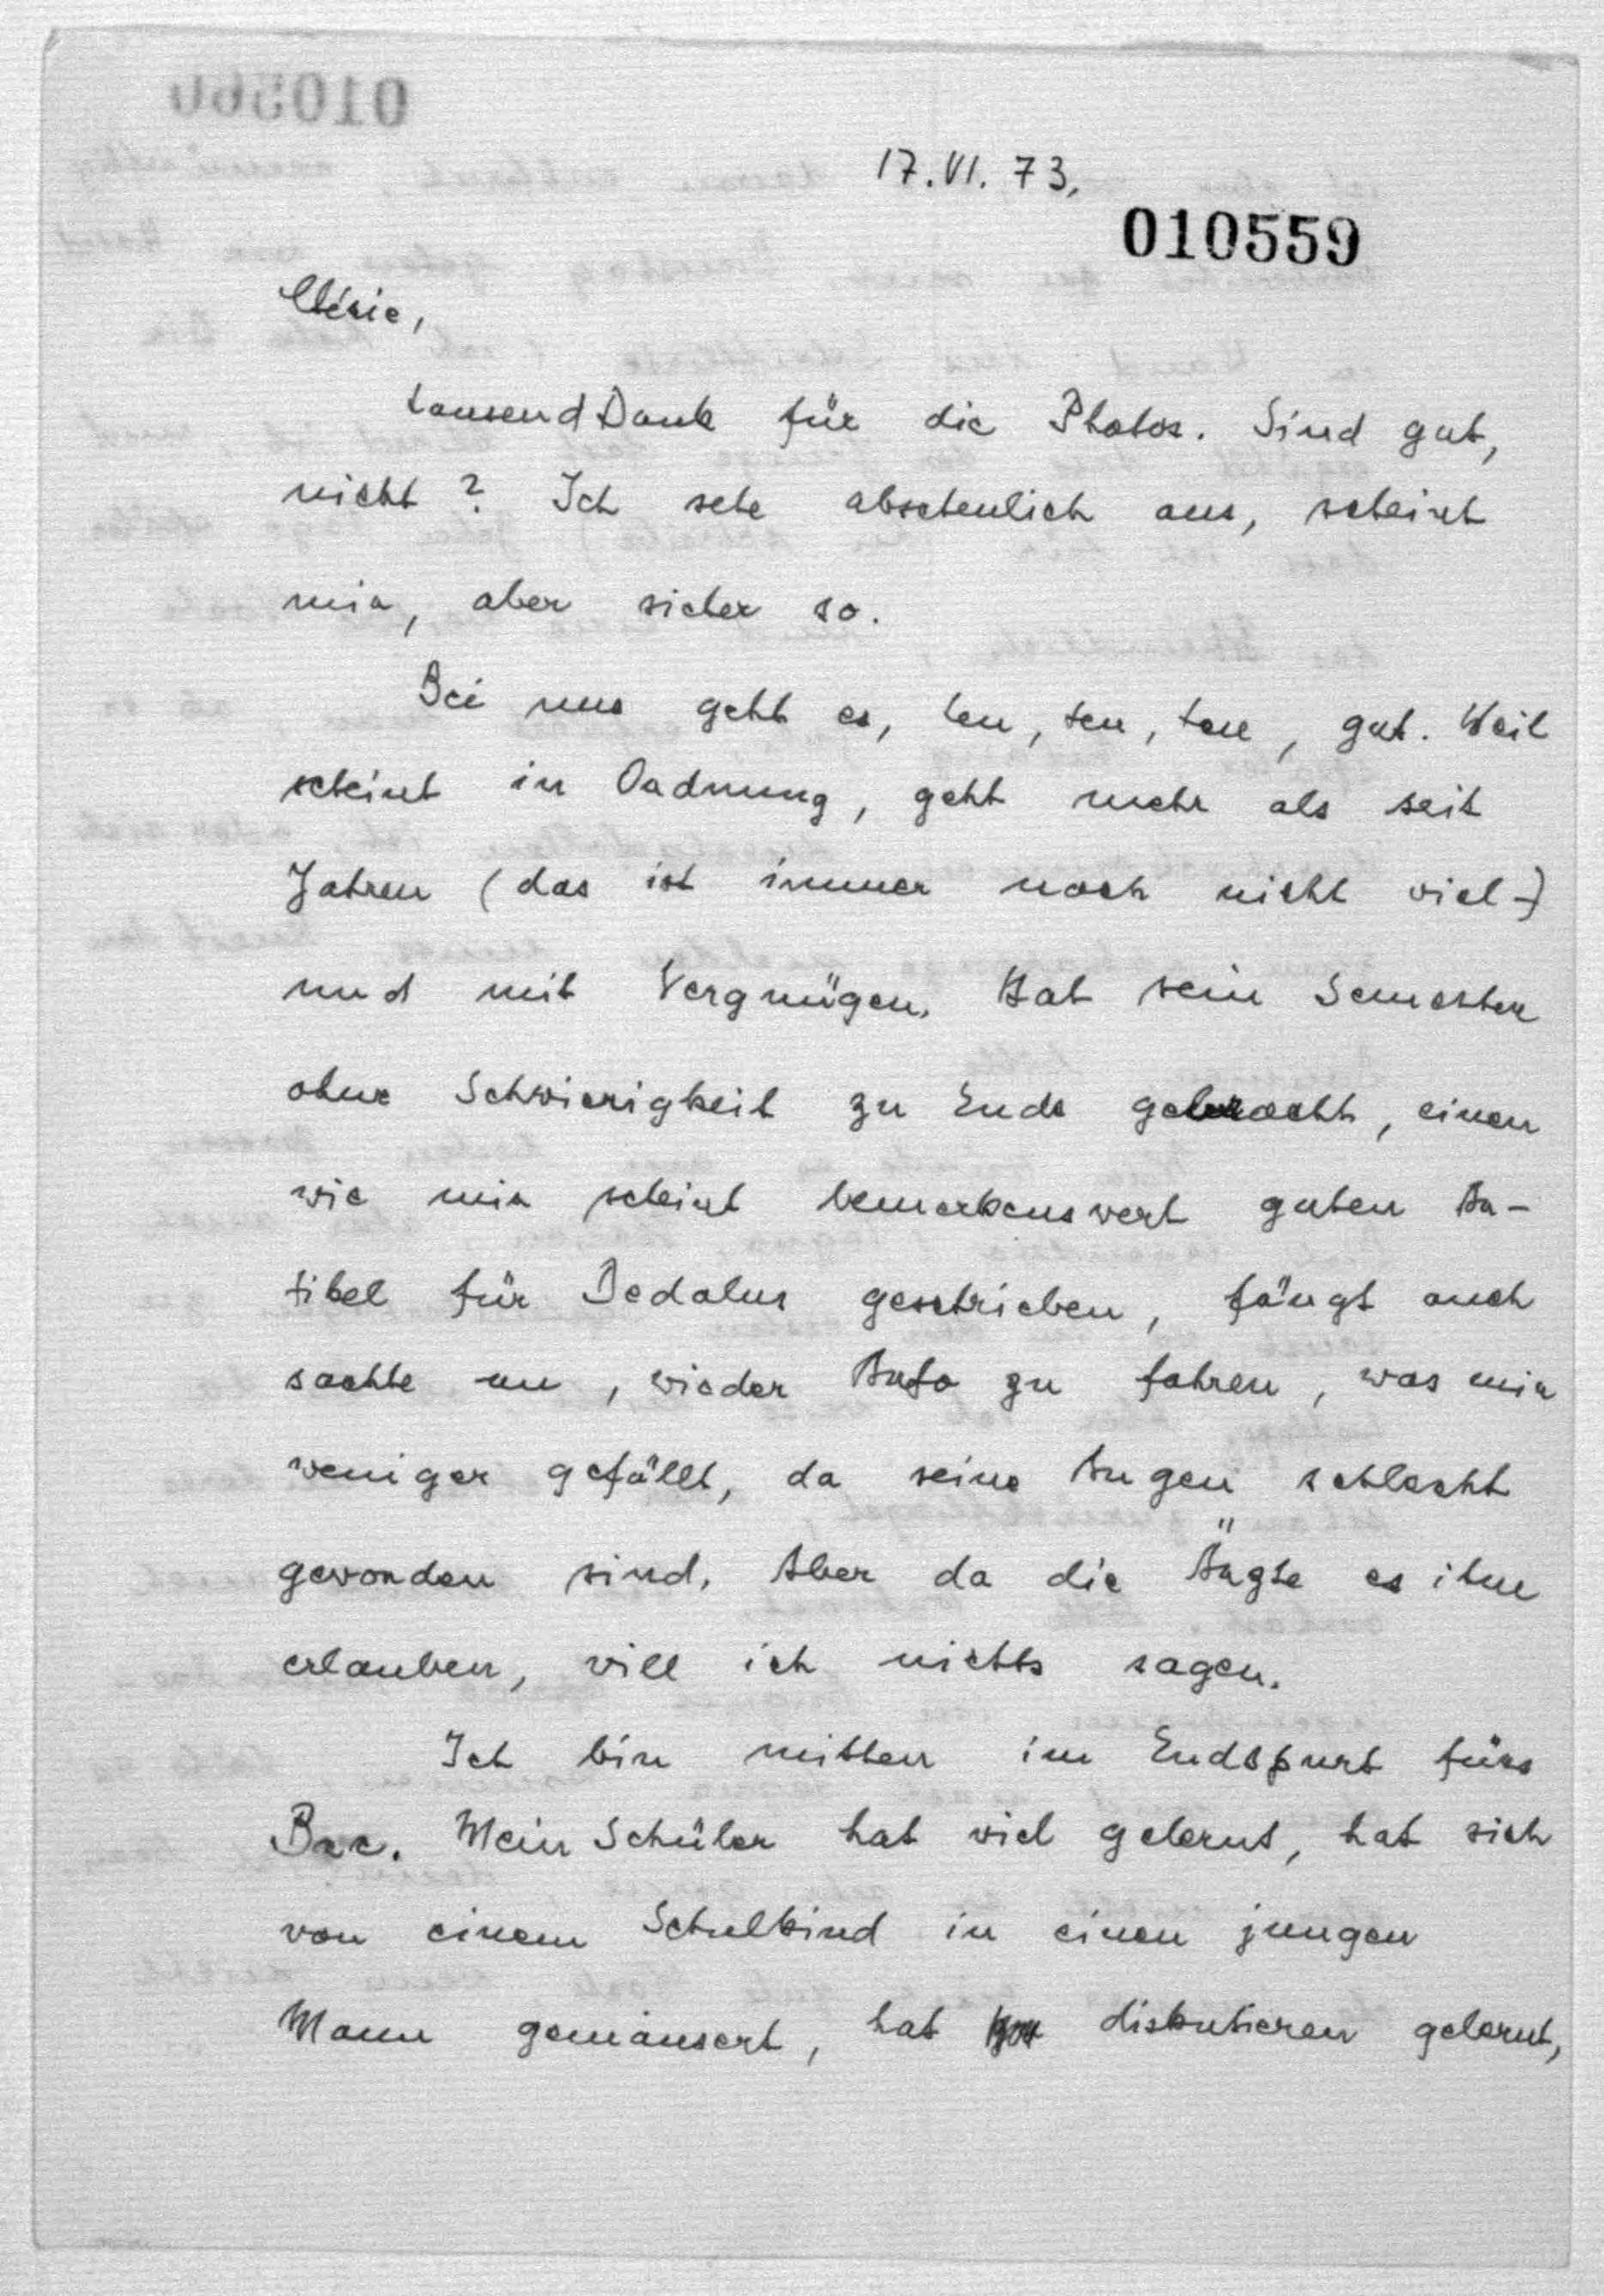 17.VI.73.
010559
Chérie,
tausend Dank für die Photos. Sind gut,
nicht? Ich sehe abscheulich aus, scheint
mir, aber sicher so.
Bei uns geht es, teu, teu, teu, gut. Weil
scheint in Ordnung, geht mehr als seit
Jahren (das ist immer noch nicht viel -)
und mit Vergnügen. Hat sein Semester
ohne Schwierigkeit zu Ende gebracht, einen
wie mir scheint bemerkenswert guten Ar-
tikel für Dedalus geschrieben, fängt auch
sachte an, wieder Auto zu fahren, was mir
weniger gefällt, da seine Augen schlecht
geworden sind. Aber da die Ärzte es ihm
erlauben, will ich nichts sagen.
Ich bin mitten im Endspurt fürs
Bac. Mein Schüler hat viel gelernt, hat sich
von einem Schulkind in einen jungen
Mann gemausert, hat diskutieren gelernt,